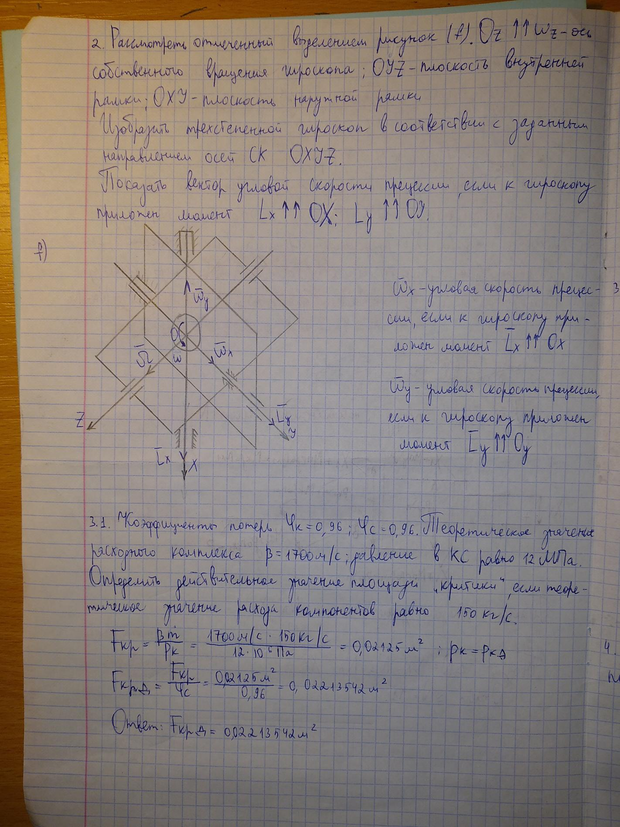 2. Рассмотреть отмеченный выделением рисунок (f). Oz ↑↑ Wz - ось
собственного вращения гироскопа; OYZ - плоскость внутренней
рамки; OXY - плоскость наружной рамки
Изобразить трехстепенной гироскоп в соответствии с заданным
направлением осей СК OXYZ.
Показать вектор угловой скорости прецессии, если к гироскопу
приложен момент Lx ↑↑ OX; Ly ↑↑ OY.
f)
ω̄y
O
ω
ω̄x
Ω̄
Z
L̄y
y
L̄x
X
ω̄x - угловая скорость прецес-
сии, если к гироскопу при-
ложен момент L̄x ↑↑ Ox
ω̄y - угловая скорость прецессии,
если к гироскопу приложен
момент L̄y ↑↑ Oy
3.1. Коэффициенты потерь φк = 0,96; φс = 0,96. Теоретическое значение
расходного комплекса β = 1700 м/с; давление в КС равно 12 МПа.
Определить действительное значение площади „критики", если теоре-
тическое значение расхода компонентов равно 150 кг/с.
Fкр = βṁ/pк = 1700 м/с · 150 кг/с / 12 · 10⁶ Па = 0,02125 м² ; pк = pкд
Fкр.д = Fкр/φс = 0,02125 м²/0,96 = 0,02213542 м²
Ответ: Fкр.д = 0,02213542 м²
3
4.